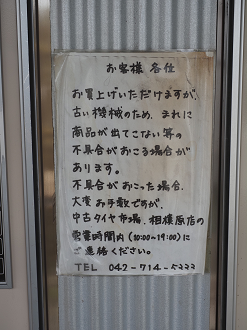 お客様 各位
お買上げいただけますが、
古い機械のため、まれに
商品が出てこない等の
不具合がおこる場合が
あります。
不具合がおこった場合、
大変お手数ですが、
中古タイヤ市場 相模原店の
営業時間内(10:00~19:00)に
ご連絡ください。
TEL 042-714-5333